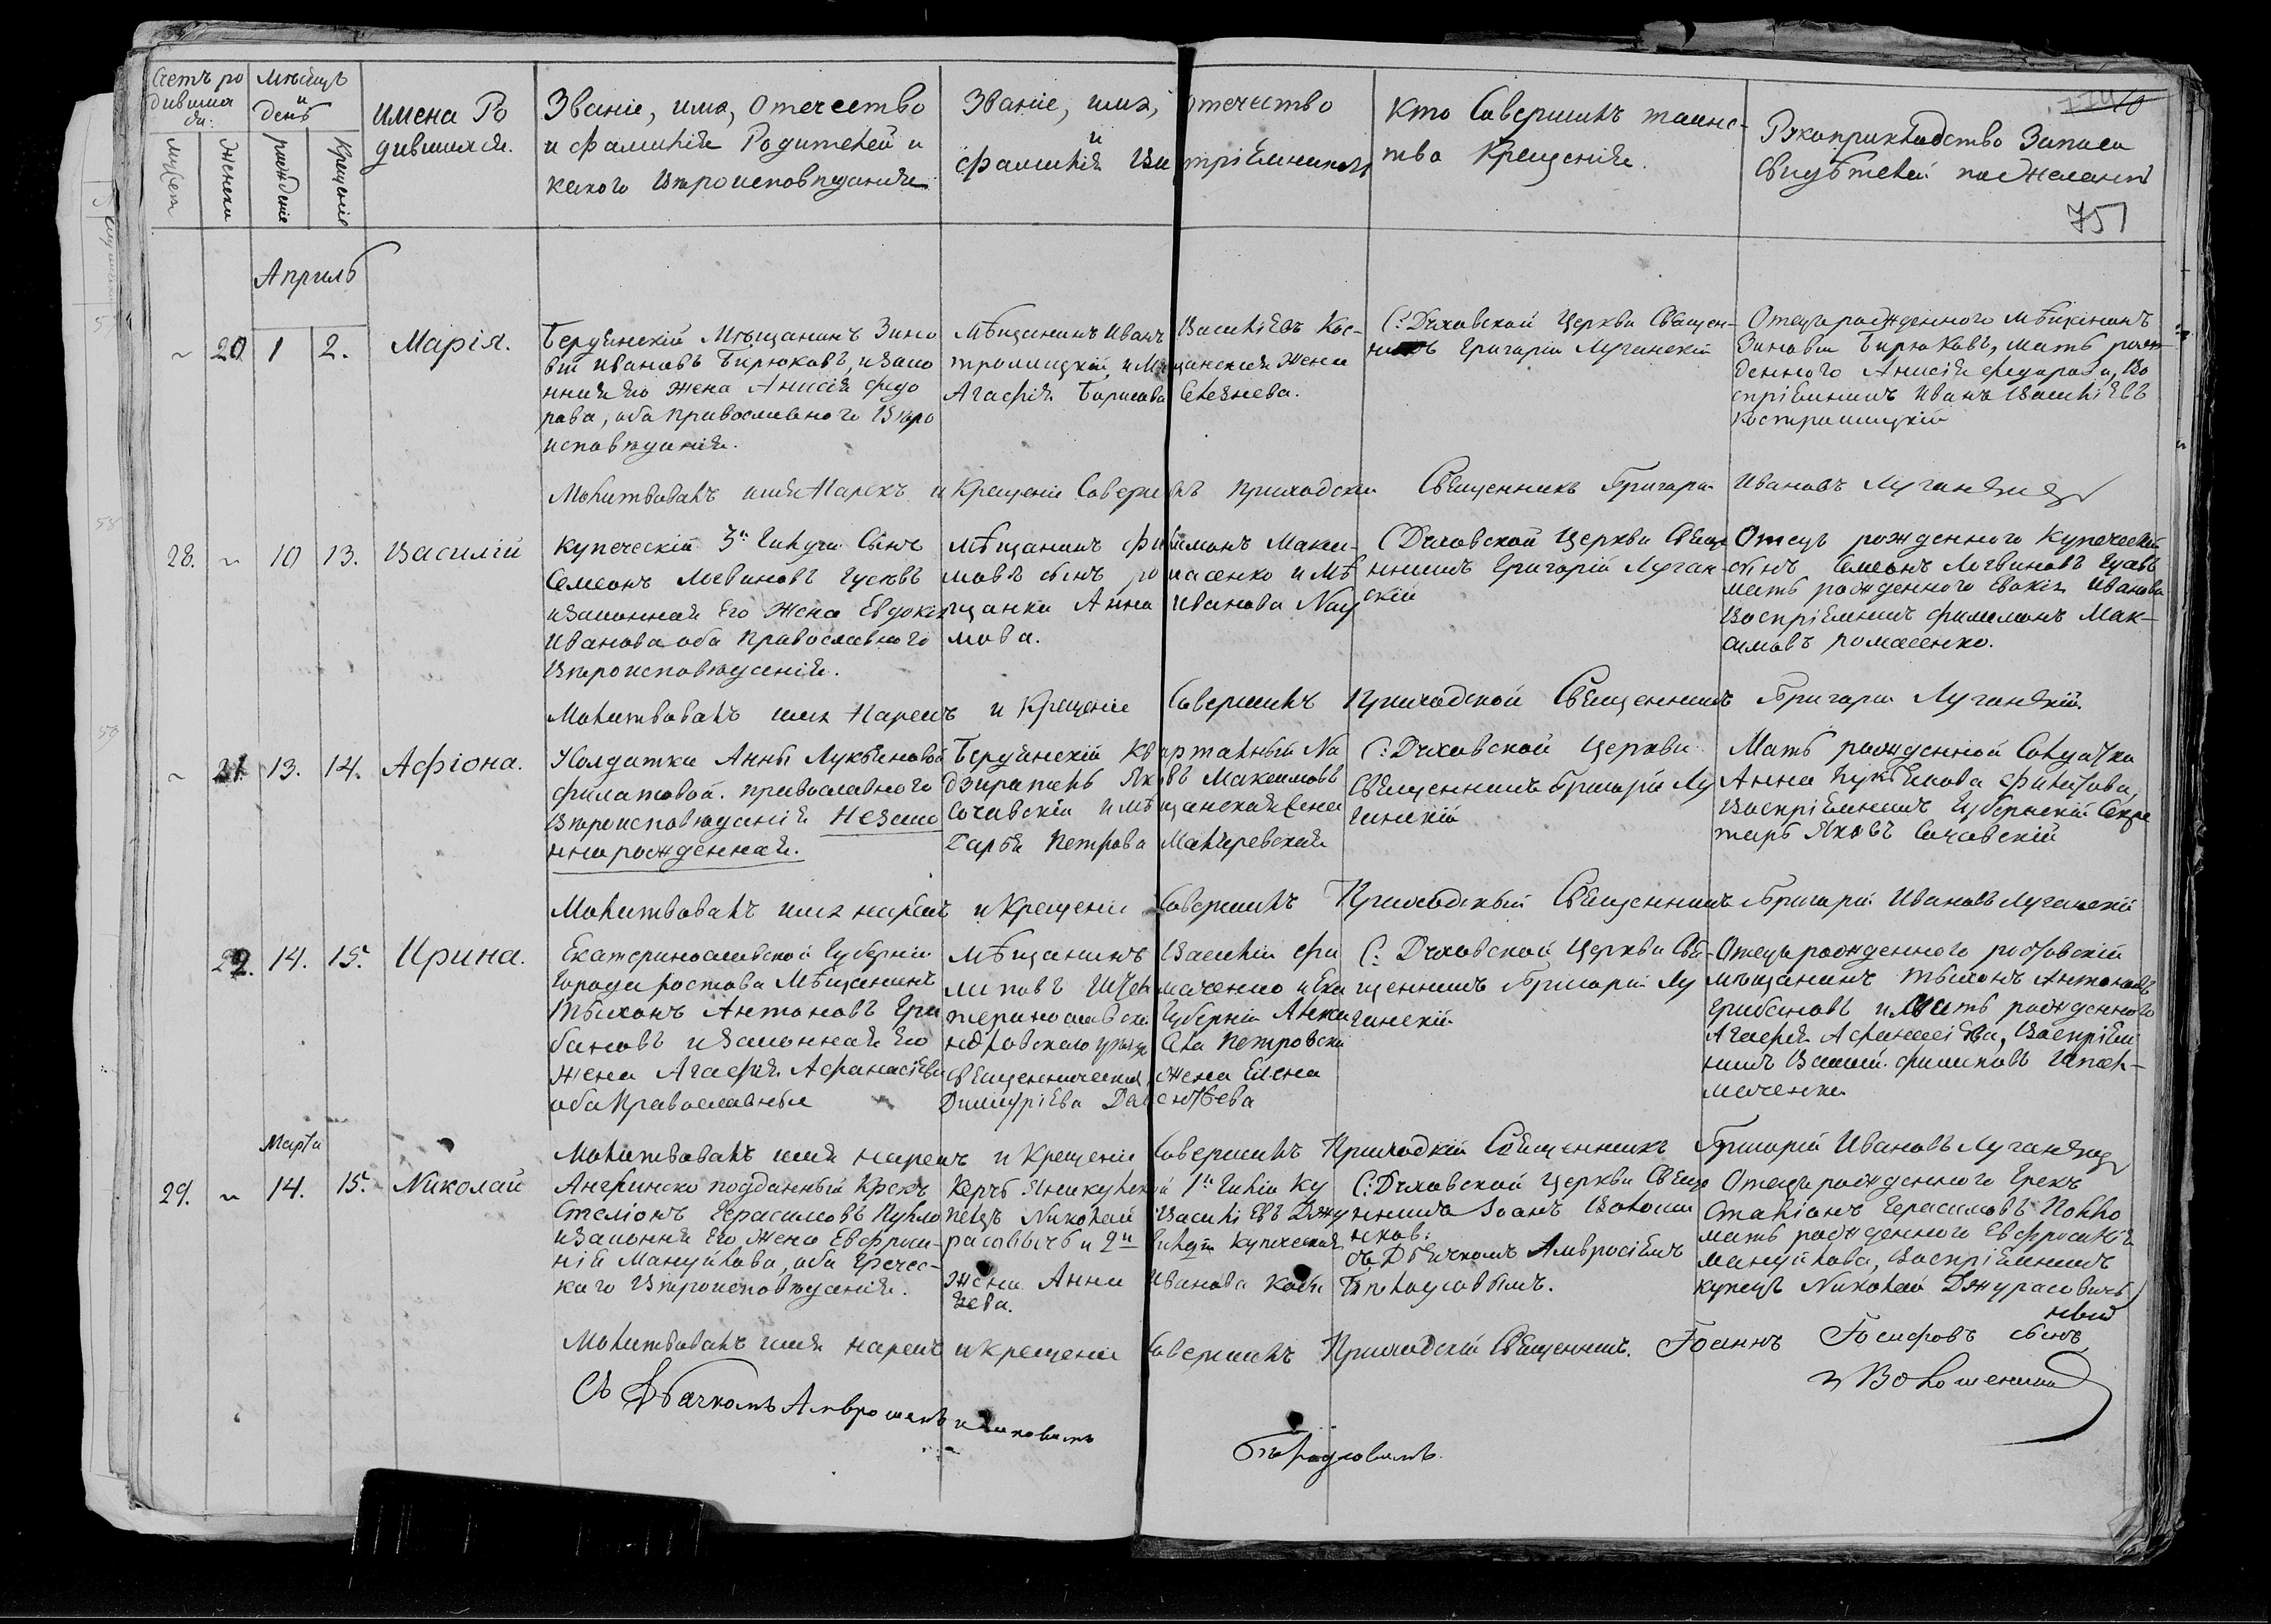 Счетъ ро
дивших
ся:
Мѣсяцъ
и
день
Имена Ро
дившихся.
Званіе, имя, Отечество
и фамилія Родителей и
какого Вѣроисповѣданія
Званіе, имя, отечество
и
фамилія Воспріемниковъ
Кто Совершилъ таинс-
тво Крещенія.
Рукоприкладство Записи
свидѣтелей по желанію
751
Мужеск
Женски
рожденіе
Крещеніе
Апрель
~ 20 1 2. Марія.
Бердянскій Мѣщанинъ Зино
вій Ивановъ Бирюковъ, и Зако
нная Его жена Анисія Федо
рова, оба православного Вѣро
исповѣданія.
Мѣщанинъ Иванъ Василіевъ Кос-
тромицкій, и Мѣщанская Жена
Агафія Борисова
С: Духовской Церкви Священ-
никъ Григорій Луганскій
Отецъ рожденного мѣщанинъ
Зиновій Бирюковъ, мать рож-
денного Анисія Федорова, Во
спріемникъ Иванъ Василіевъ
Костромицкій
Молитвовалъ имя Нарекъ и Крещеніе Совершилъ приходскій Священникъ Григорій Ивановъ Луганскій
28. ~ 10 13. Василій
Купеческій 3й Гильдіи Сынъ
Семеонъ Логвиновъ Гусевъ
и Законная Его Жена Евдокія
Иванова оба Православного
Вѣроисповѣданія.
Мѣщанинъ Филимонъ Макси-
мовъ сынъ Ромасенко и Мѣ
щанка Анна Иванова Нау
мова.
С Духовской Церкви Свяще
нникъ Григорій Луган-
скій
Отецъ рожденного Купеческій
сынъ Семеонъ Логвиновъ Гусевъ
мать рожденного Евдокія Иванова
Воспріемникъ Филимонъ Мак-
симовъ Ромасенко.
Молитвовалъ имя Нарекъ и Крещеніе Совершилъ Приходской Священникъ Григорій Луганскій.
~ 21 13. 14. Афіона.
Солдатки Анны Лукьяновой
Филатовой. православного
Вѣроисповѣданія Незако
ннорожденная.
Бердянскій Квартальный На
дзиратель Яковъ Максимовъ
Сочавскій и мѣщанская жена
Дарья Петрова
С: Духовской Церкви
Священникъ Григорій Лу
ганскій
Мать рожденной Солдатка
Анна Лукьянова Филатова,
Воспріемникъ Губернскій Секре
тарь Яковъ Сочавскій
Молитвовалъ имя нарекъ и Крещеніе Совершилъ Приходскій Священникъ Григорій Ивановъ Луганскій
22. 14. 15. Ирина.
Екатеринославской Губерніи
Города Ростова Мѣщанинъ
Тихонъ Антоновъ Гри
бановъ и Законная Его
жена Агафія Афанасіева
оба Православные
Мѣщанинъ Василій Фи
липовъ Шпомаченко и Ека
теринославской Губерніи Алекса
ндровскаго уезда Села Петровска
священническая жена Елена
Димитріева
С: Духовской Церкви Свя-
щенникъ Григорій Лу
ганскій
Отецъ рожденного ростовскій
мѣщанинъ Тихонъ Антоновъ
Грибановъ и Мать рожденного
Агафія Афанасіева, Воспріем
никъ Василій Филиповъ
Молитвовалъ имя нарекъ и Крещеніе Совершилъ Приходскій Священникъ Григорій Ивановъ Луганскій
Марта
29. ~ 14. 15. Николай
Англинско подданный Грекъ
Стеліонъ Герасимовъ
и Законная Его Жена Евфроси-
нія Мануйлова, оба Гречес-
каго Вѣроисповѣданія.
Керчь Яникульскій 1й Гильдіи Ку
пецъ Николай Василіевъ Джу
расовичъ и 2й Гильдіи Купеческая
Жена Анна Иванова
С: Духовской Церкви Свяще
нникъ Іоанъ Волоши
нковъ:
съ Дьячкомъ Амвросіемъ
Отецъ рожденного Грекъ
Сталіонъ Герасимовъ
мать рожденного Евфросинія
Мануйлова, Воспріемникъ
Купецъ Николай Джурасовичъ
Молитвовалъ имя нарекъ и крещеніе совершилъ Приходскій Священникъ. Іоаннъ Іосифовъ сынъ
Волошенко
Съ Дьячкомъ Амвросіемъ